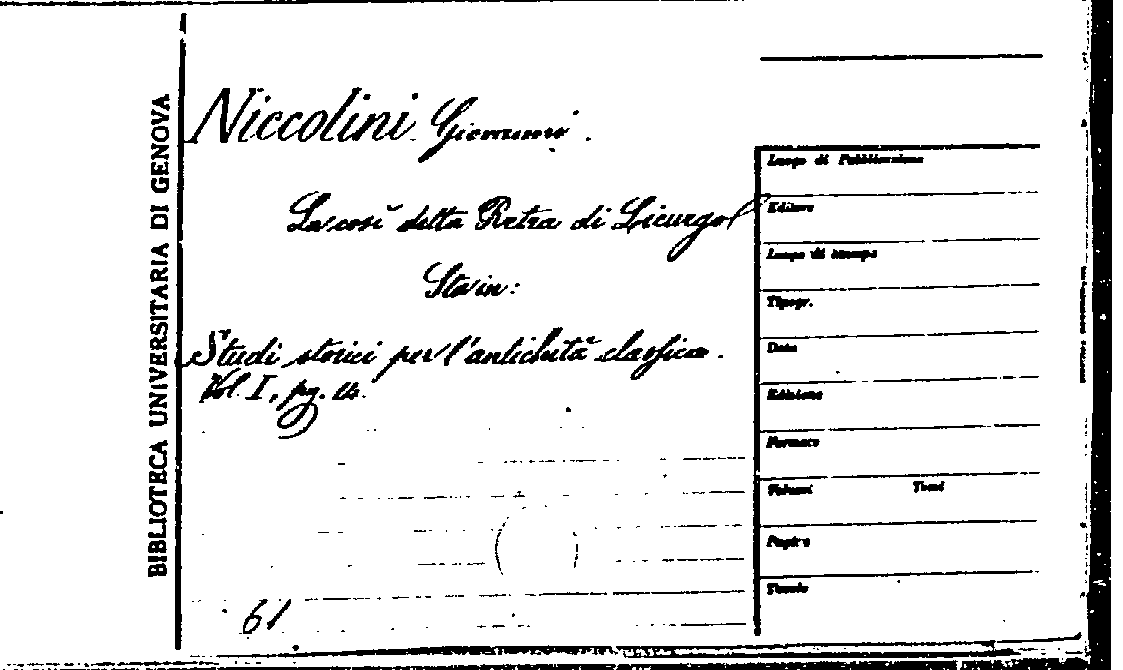 BIBLIOTECA UNIVERSITARIA DI GENOVA
Niccolini Giovanni.
La così detta Retra di Licurgo
Sta in:
Studi storici per l'antichità classica.
Vol. I, pg.
61
Luogo di Pubblicazione
Editore
Luogo di stampa
Tipogr.
Data
Edizione
Formato
Volumi Tomi
Pagine
Tavole